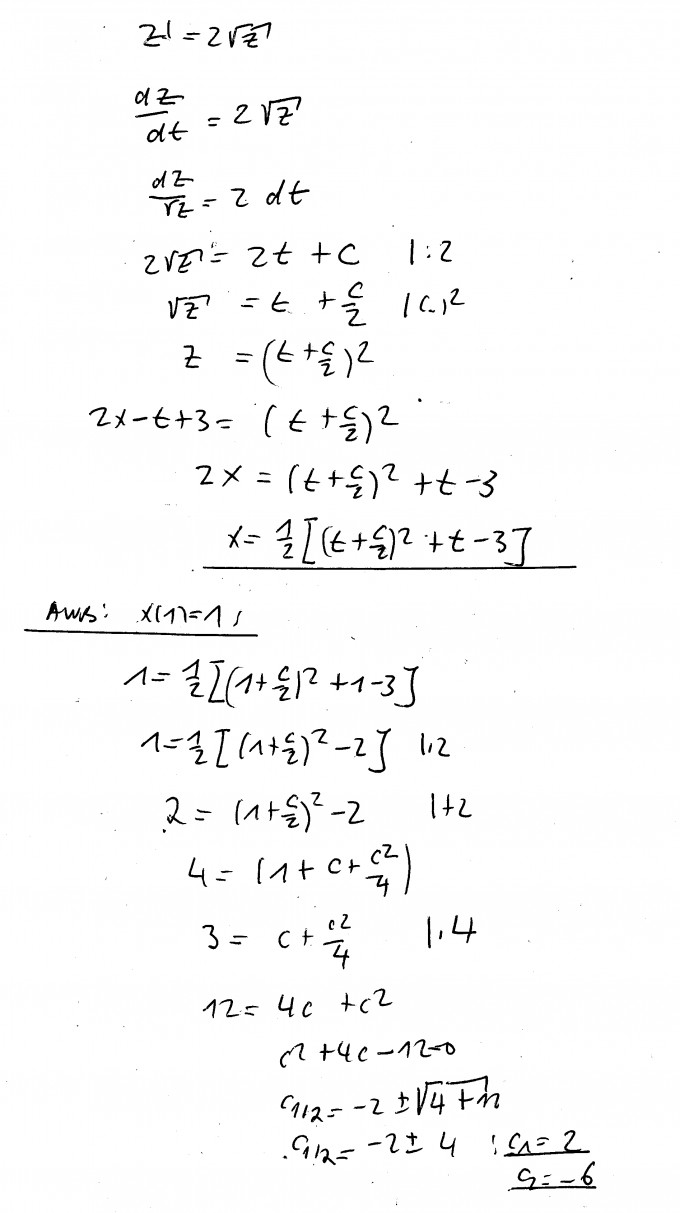 z' = 2√z
dz/dt = 2√z
dz/√z = 2 dt
2√z = 2t + C | :2
√z = t + C/2 | (..)²
z = (t + C/2)²
2x - t + 3 = (t + C/2)²
2x = (t + C/2)² + t - 3
x = 1/2 [(t + C/2)² + t - 3]
AWB: x(1) = 1 ;
1 = 1/2 [(1 + C/2)² + 1 - 3]
1 = 1/2 [(1 + C/2)² - 2] | ·2
2 = (1 + C/2)² - 2 | +2
4 = (1 + C + C²/4)
3 = C + C²/4 | ·4
12 = 4C + C²
C² + 4C - 12 = 0
C1/2 = -2 ± √4 + 12
C1/2 = -2 ± 4 ; C1 = 2
C2 = -6